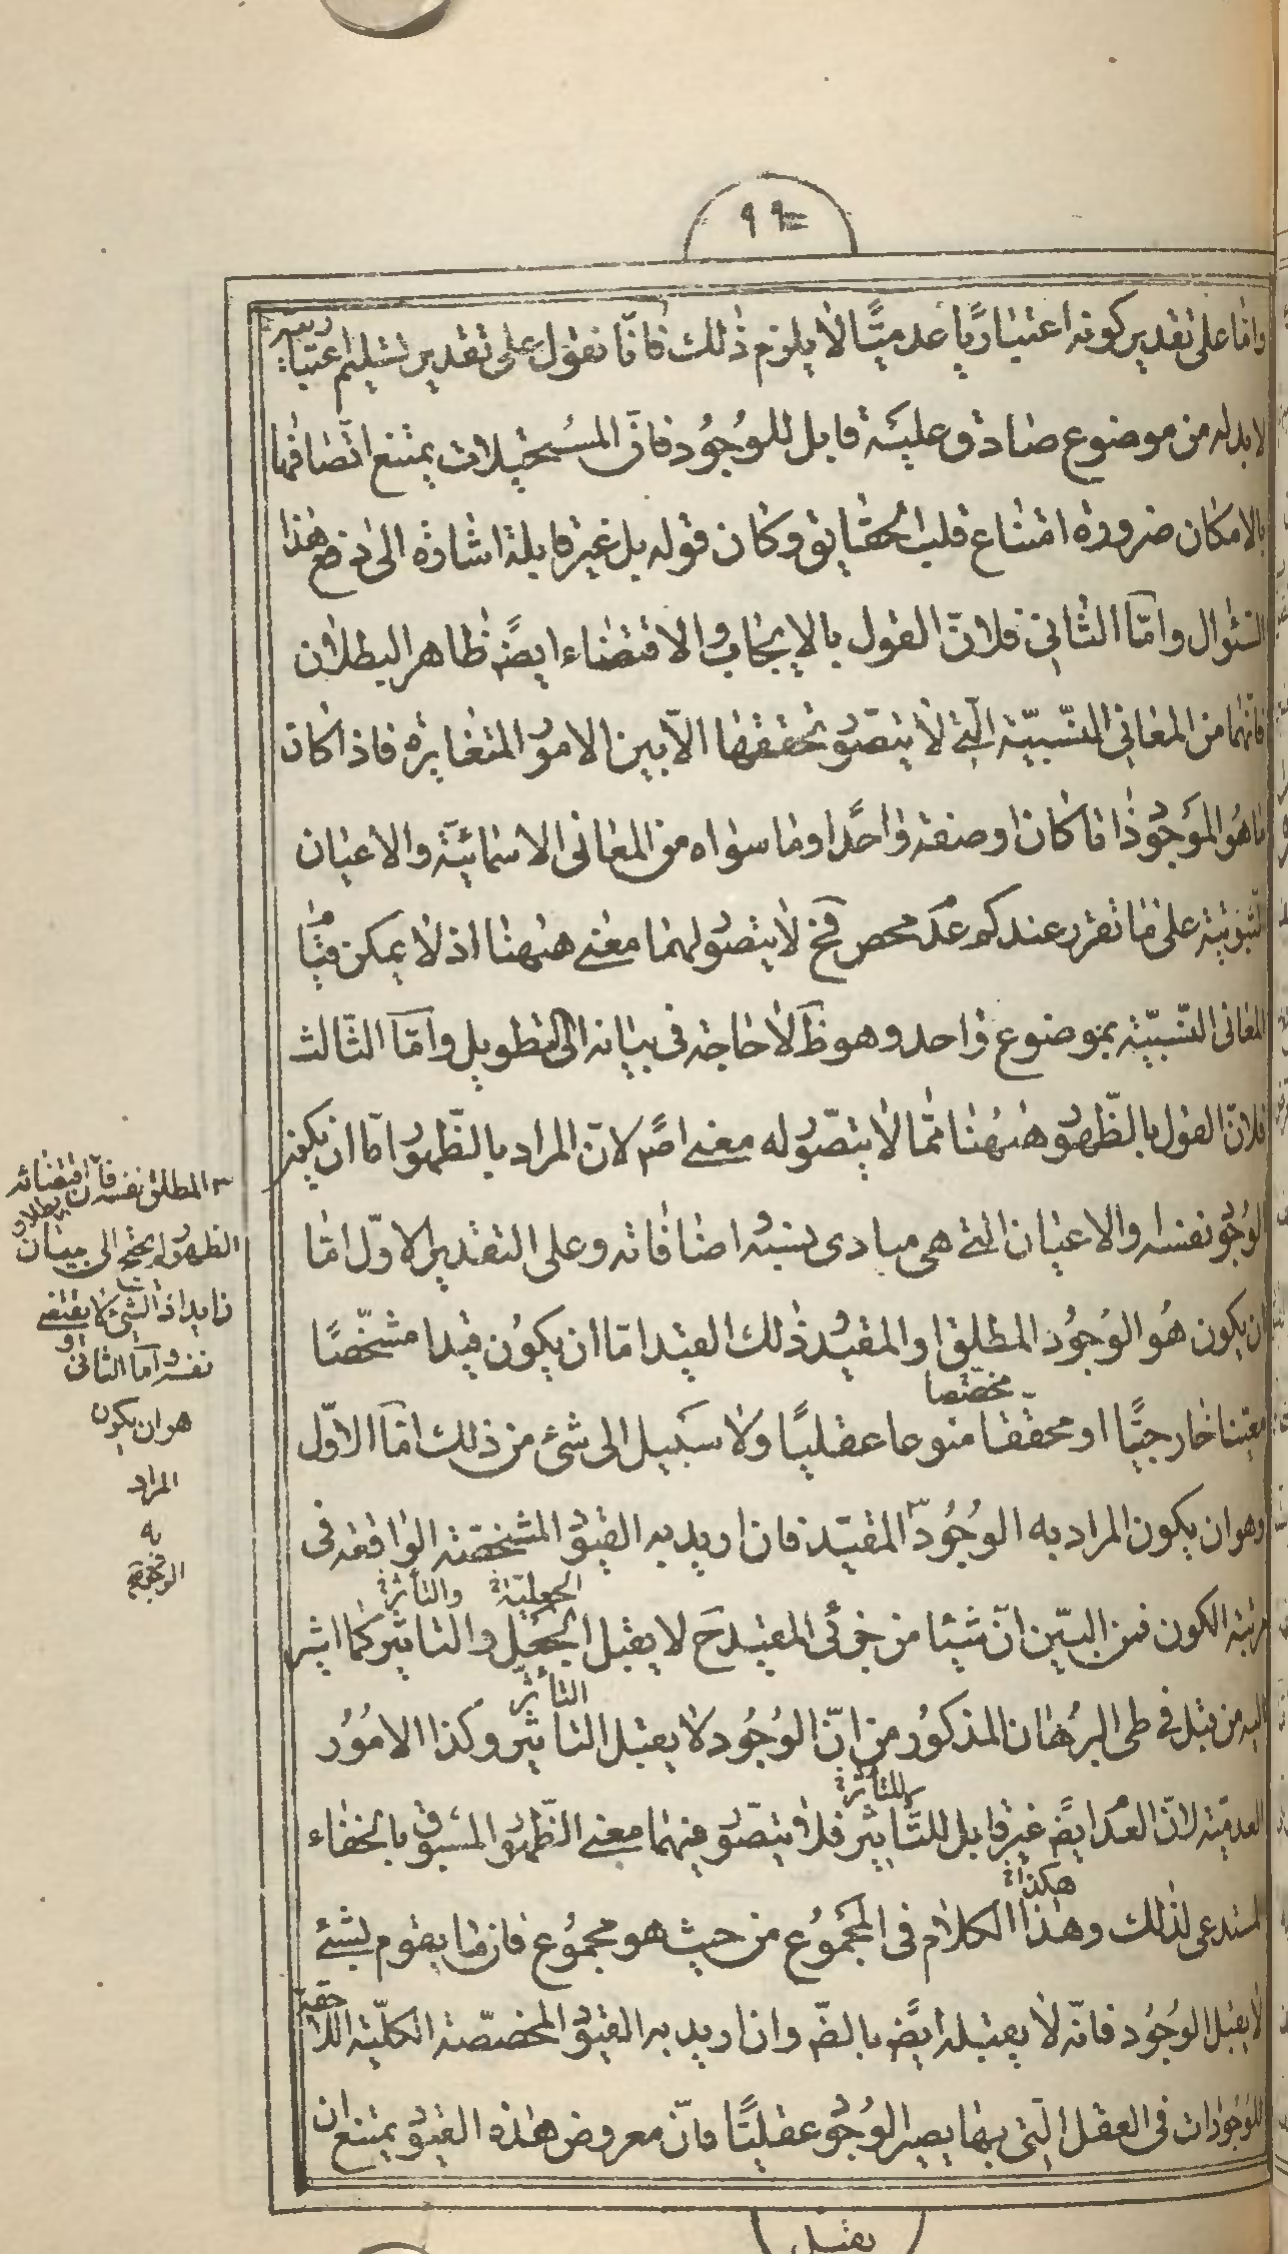 ٩٩
واما على تقدير كونه اعتباريّا عدميّا لا يلزم ذلك فانّا نقول على تقدير تسليم اعتباريته
لا بد له من موضوع صادق عليه قابل للوجُود فانّ المسُتحيلات يمتنع اتّصافها
بالامكان ضرورة امتناع قلب الحقايق وكان قوله بل غير قابلة اشارة الى دفع هٰذا
السّؤال وامّا الثّانى فلانّ القول بالايجاب والاقتضاء ايضًه ظاهر البطلان
فانّهما من المعانى النّسبيّة الّتى لا يتصّور تحققها الاّ بين الامور المتغايرة فاذا كان
ما هو الموجُود ذاتا كان او صفة واحدًا وما سواه من المعانى الاسمائيّة والاعيان
الثبوتية على ما تقرر عندكم عدم محض فح لا يتصور لهما معنى هيهنا اذ لا يمكن قيام
المعانى النّسبيّة بموضوع واحد وهو ظَ لا حاجة فى بيانه الى التّطويل وامّا الثّالث
فلانّ القول بالظّهور هٰيهنا ممّا لا يتصّور له معنى اصًم لانّ المراد بالظّهور امّا ان يكون
الوجُود نفسه او الاعيان التى هى مبادى نسبه اضافاته وعلى التقدير الاوّل امّا
ان يكون هُو الوجُود المطلق او المقيد ذٰلك القيد امّا ان يكوُن قيدا مشخّصًا
مخصّصا
معيّنا خارجيًّا او محققا منوعا عقليًا ولا سبيل الى شئ من ذلك امّا الاوّل
وهو ان يكون المراد به الوجُود٣ المقيّد فان اريد به القيود المشخصّة الواقعة فى
الجعليّة والتأثرية
مرتبة الكون فمن البيّن انّ شيئا من جزئى المقيد حَ لا يقبل الجعل والتاثير كما اشير
التأثر
اليه من قبل فى طى البرهان المذكوُر من انّ الوجُود لا يقبل التاثير وكذا الامُوُر
للتأثرية
العدميّة لانّ العدم ايضًه غير قابل للتّاثير فلا يتصّور فيهما معنى الظّهور المسبوق بالخفاء
هكذا
المستدعى لذلك وهٰذا الكلام فى المجمُوع من حيث هو مجمُوع فان ما يقوم بشئ
لا يقبل الوجُود فانّه لا يقبله ايضًه بالضّ وان اريد به القيود المخصّصة الكليّة اللاحقة
للوجودات فى العقل الّتى بها يصير الوجُود عقليًّا فانّ معروض هٰذه القيود يمتنع ان
يقبل
٣ المطلق نفسه فانّ اقتضائه
الظهور لم يحتج الى بيان بطلان
زايد اذ الشئ لا يقتضى
نفسه وامّا الثّانى
وهو ان يكون
المراد
به
الوجود